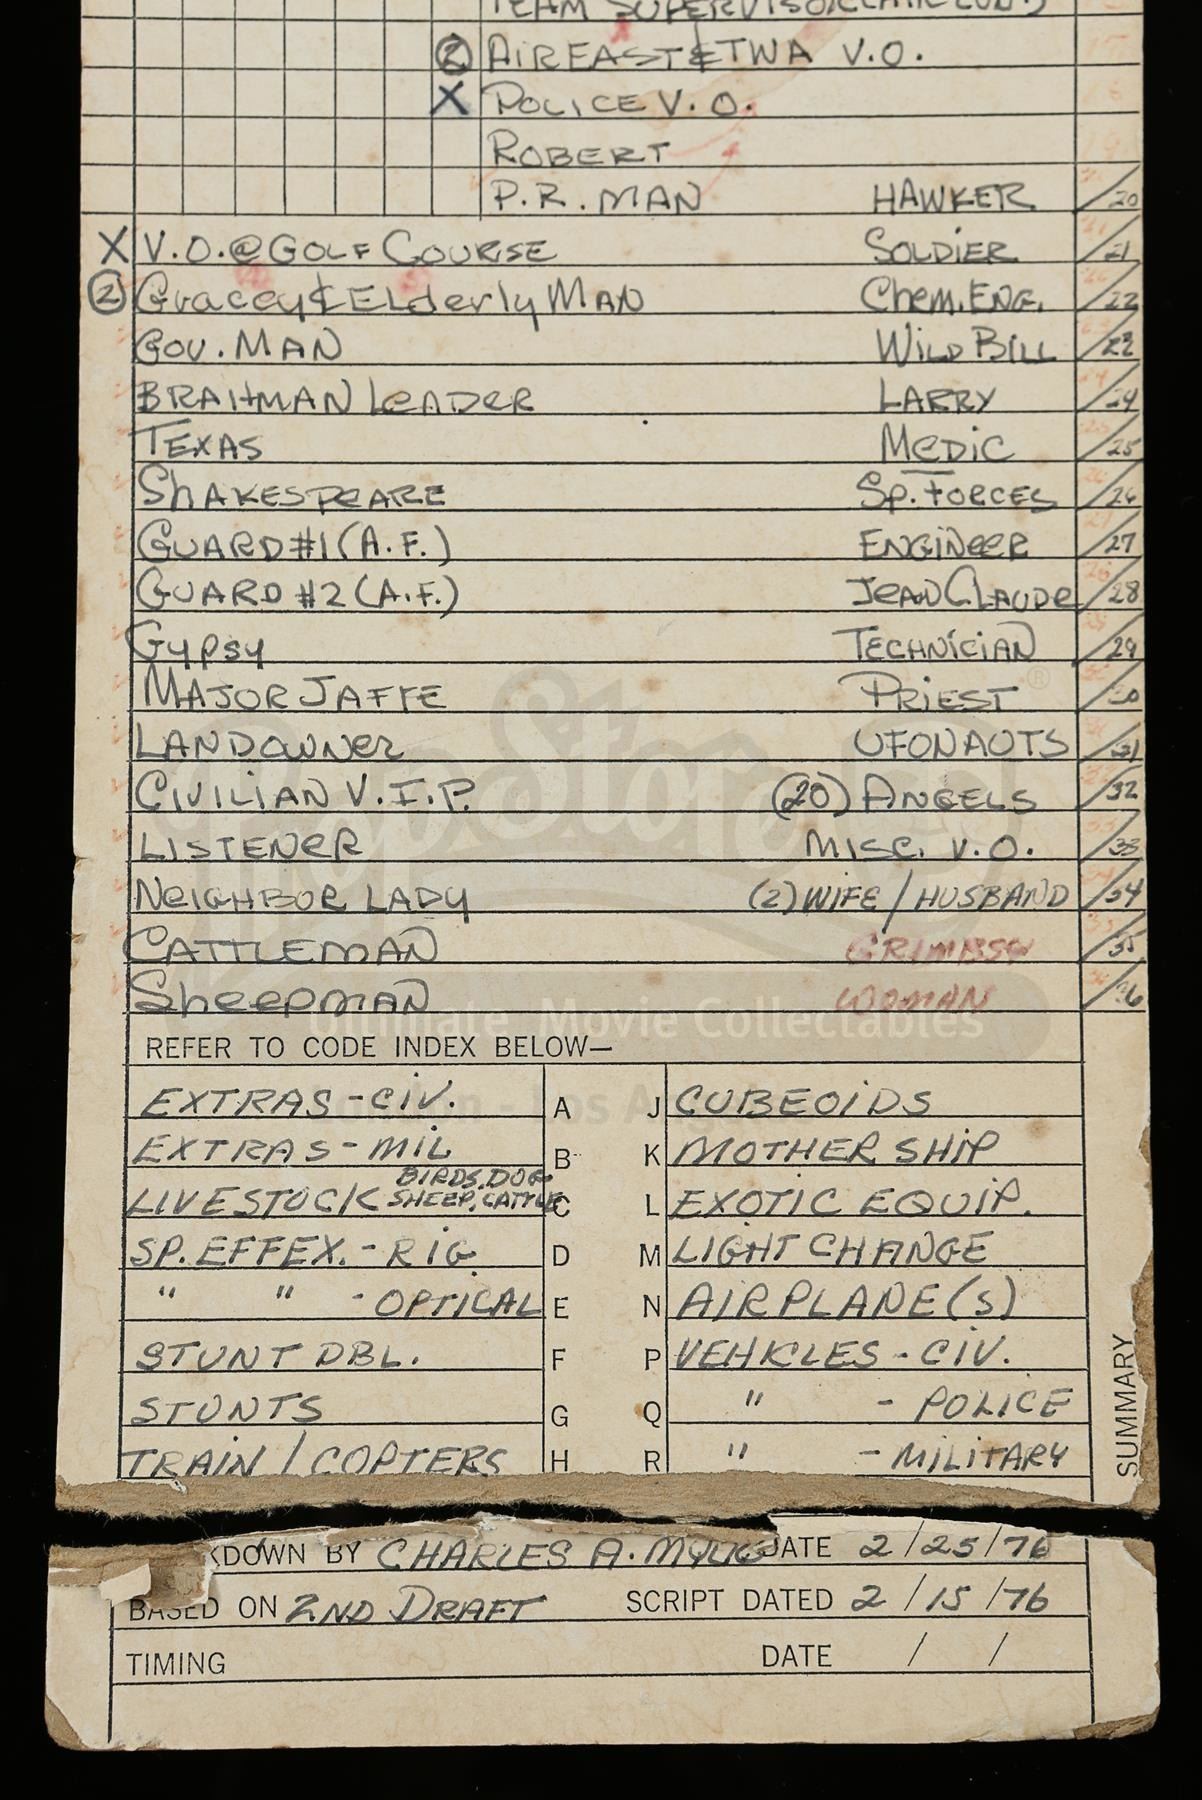 TEAM SUPERVISOR (AIR CONT)
② AIR EAST & TWA V.O.
X POLICE V.O.
ROBERT
P.R. MAN HAWKER 20
X V.O. @ GOLF COURSE SOLDIER 21
② Gracey & ELderly MAN Chem. ENG. 22
GOV. MAN WILD BILL 23
BRAHMAN LeADeR LARRY 24
TEXAS MeDIC 25
ShAKESPeARE Sp. FORCES 26
GUARD #1 (A.F.) ENGINeeR 27
GUARD #2 (A.F.) JeAN CLAUDe 28
Gypsy TECHNICIAN 29
MAJOR JAFFE PRIEST 30
LANDOWNer UFONAUTS 31
CIVILIAN V.I.P. (20) ANGELS 32
LISTENeR MISC. V.O. 33
NeIGHBOR LADY (2) WIFE / HUSBAND 34
CATTLEMAN GRIMBSY 35
SheepMAN WOMAN 36
Prop Store ®
Ultimate Movie Collectables
London - Los Angeles
REFER TO CODE INDEX BELOW—
EXTRAS - CIV. A J CUBEOIDS
EXTRAS - MIL B K MOTHER SHIP
LIVESTOCK BIRDS, DOG SHEEP, CATTLE C L EXOTIC EQUIP.
SP. EFFEX. - RIG D M LIGHT CHANGE
" " - OPTICAL E N AIRPLANE(S)
STUNT DBL. F P VEHICLES - CIV.
STUNTS G Q " - POLICE
TRAIN / COPTERS H R " - MILITARY
SUMMARY
KDOWN BY CHARLES A. MYLIC DATE 2/25/76
BASED ON 2ND DRAFT SCRIPT DATED 2/15/76
TIMING DATE / /